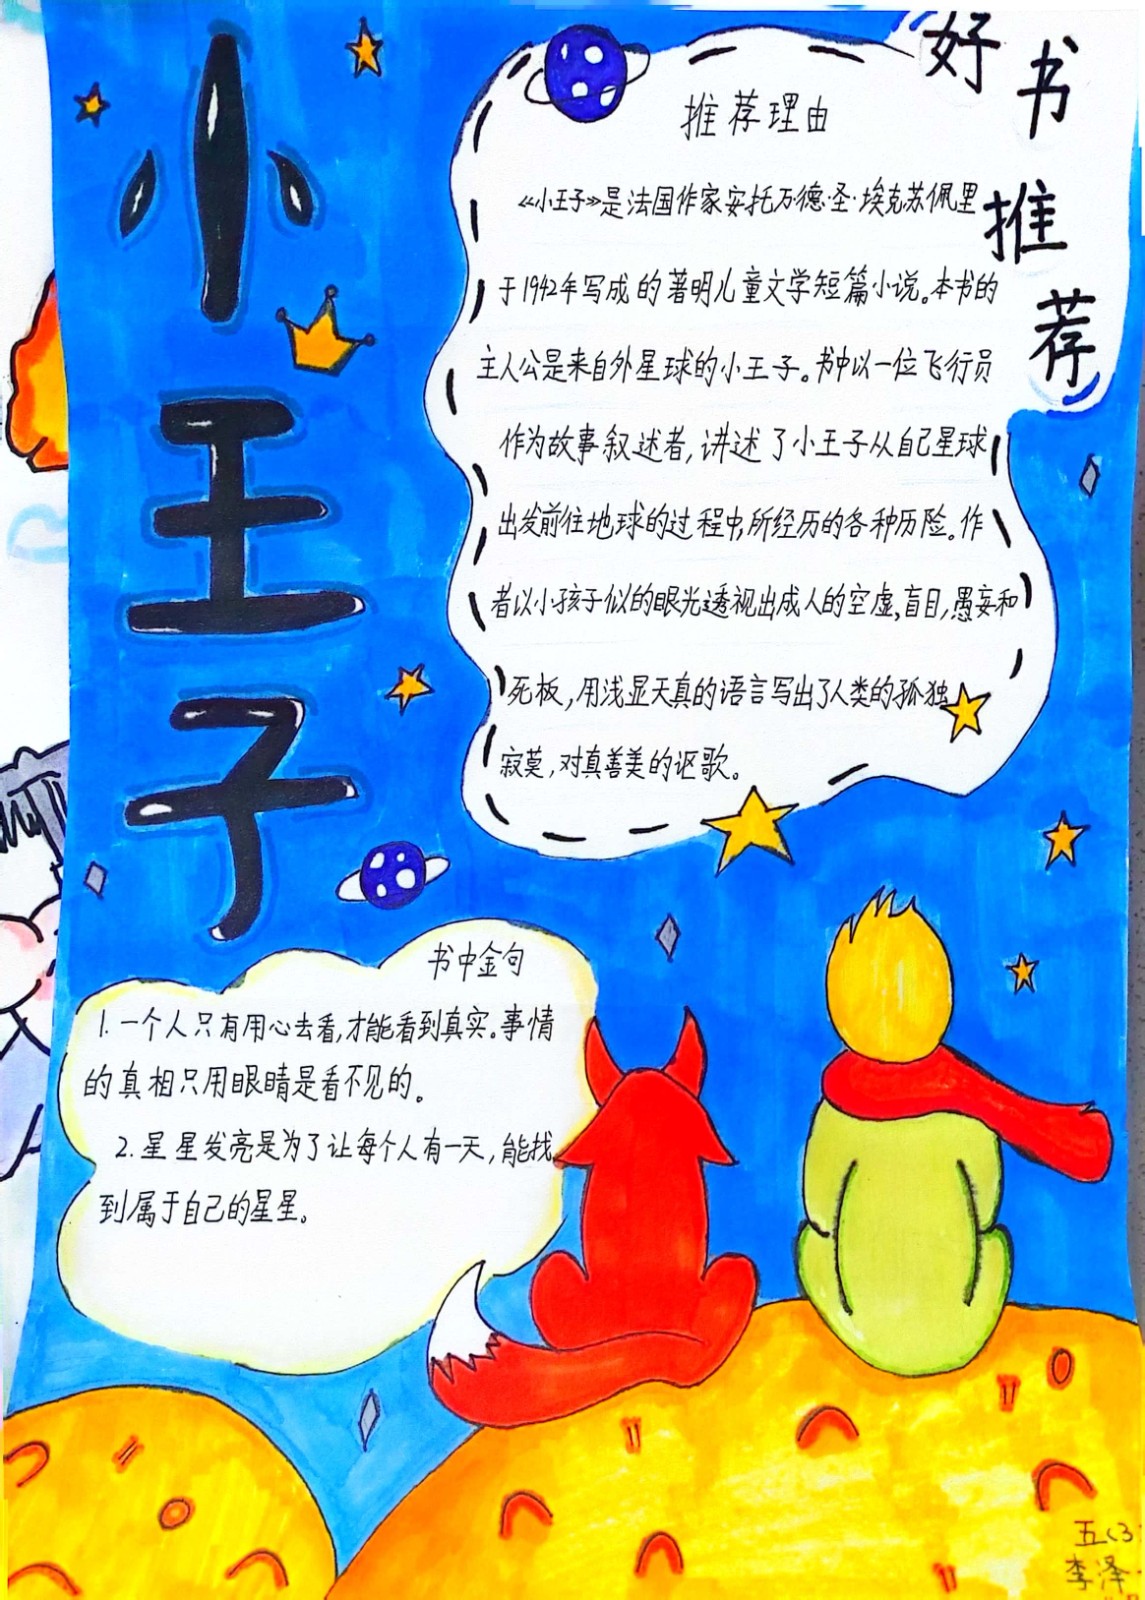 小王子
好书推荐
推荐理由
《小王子》是法国作家安托万·德·圣·埃克苏佩里
于1942年写成的著明儿童文学短篇小说。本书的
主人公是来自外星球的小王子。书中以一位飞行员
作为故事叙述者,讲述了小王子从自己星球
出发前往地球的过程中,所经历的各种历险。作
者以小孩子似的眼光透视出成人的空虚,盲目,愚妄和
死板,用浅显天真的语言写出了人类的孤独
寂莫,对真善美的讴歌。
书中金句
1.一个人只有用心去看,才能看到真实。事情
的真相只用眼睛是看不见的。
2.星星发亮是为了让每个人有一天,能找
到属于自己的星星。
五(3
李泽